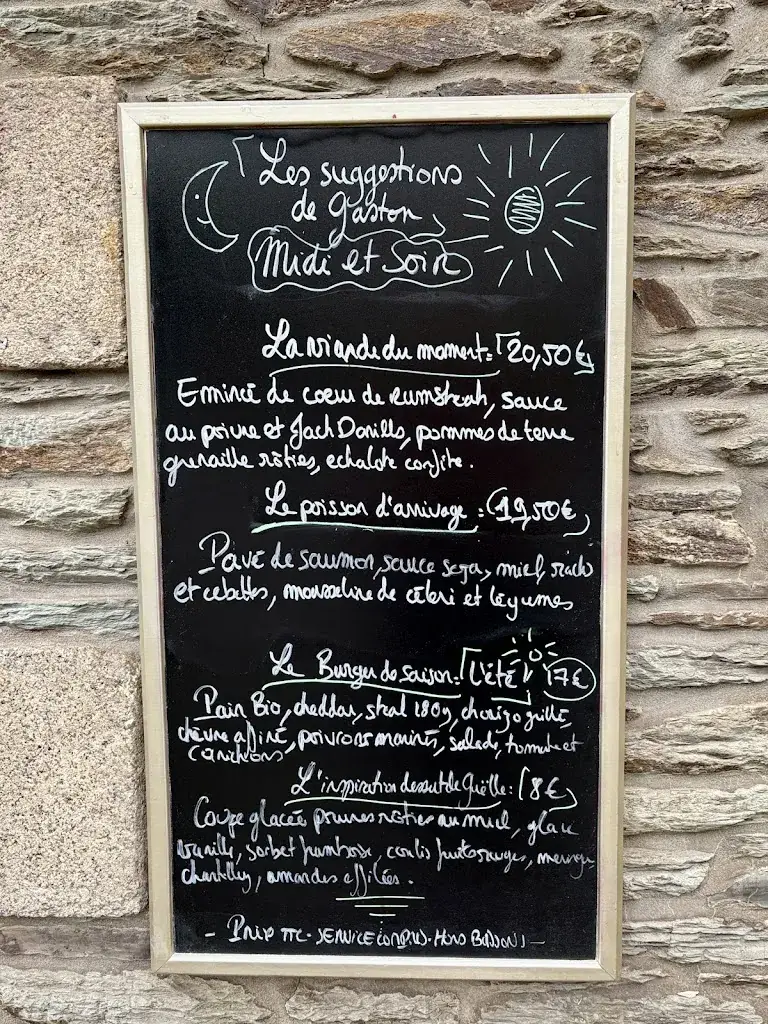 Les suggestions
de Gaston
Midi et Soir
La viande du moment : 20,50 €
Emincé de coeur de rumsteak, sauce
au poivre et Jack Daniels, pommes de terre
grenaille rôties, echalote confite.
Le poisson d'arrivage : 19,50 €
Pavé de saumon, sauce soja, miel,
et cebettes, mousseline de céleri et légumes
Le Burger de saison : L'été ! 17 €
Pain Bio, cheddar, steak 180g, chorizo grillé,
chèvre affiné, poivrons marinés, salade, tomate et
cornichons
L'inspiration dessert de : 8 €
Coupe glacée prunes rôties au miel, glace
vanille, sorbet framboise, coulis fruits rouges, meringue,
chantilly, amandes effilées.
- Prix TTC - SERVICE COMPRIS - Hors Boissons -